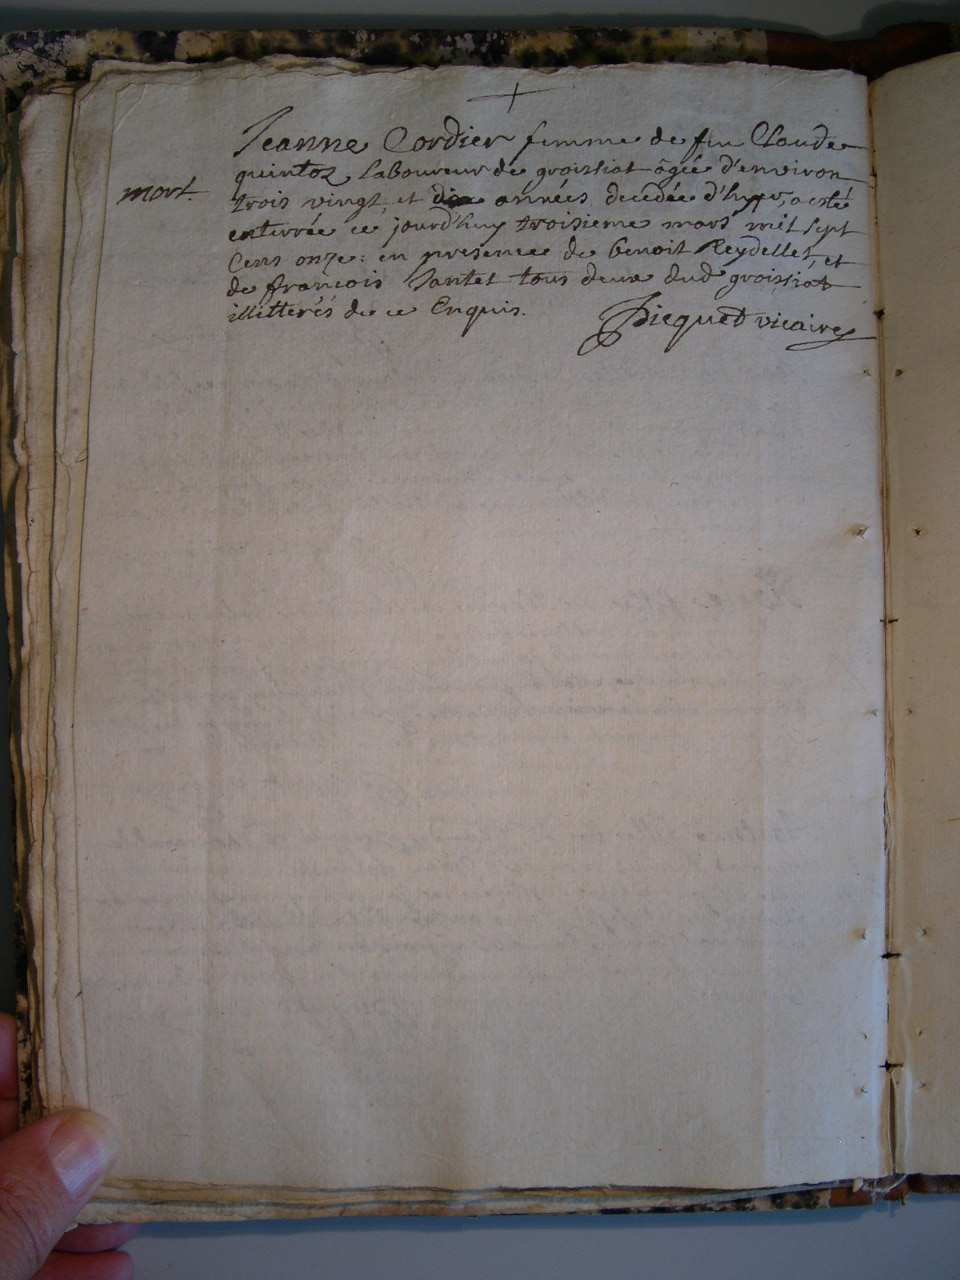 Jeanne Cordier femme de feu Claude
quintoz laboureur de groissiat âgée d'environ
mort.
trois vingt et dix années decedée d'hyer, a esté
enterrée ce jourd'huy troisieme mars mil sept
Cens onze: en presence de benoit Reydellet, et
de francois Jantet tous deux dud groissiat
illitterés de ce Enquis. Picquet vicaire